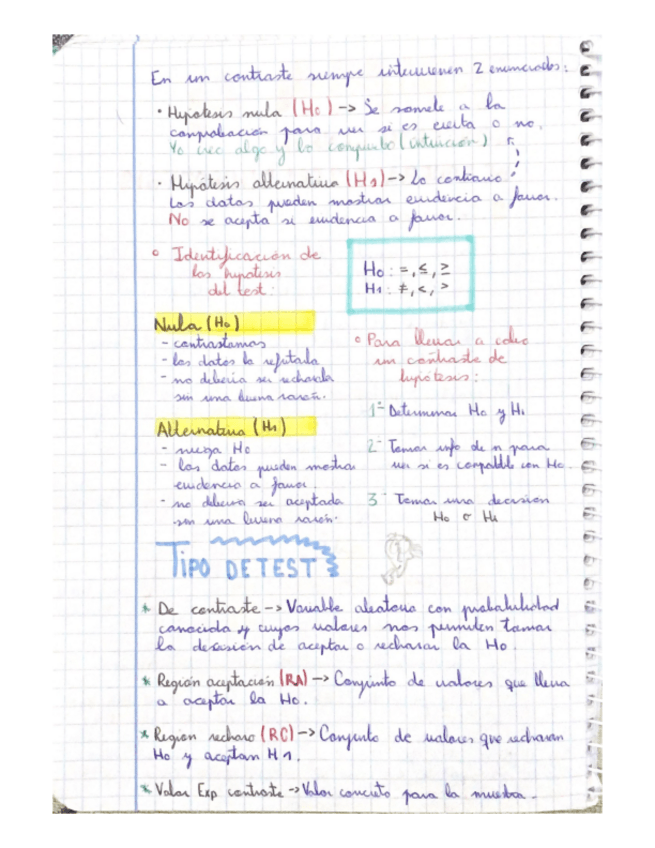 En un contraste siempre intervienen 2 enunciados:
· Hipotesis nula (H0) -> Se somete a la
comprobación para ver si es cierta o no.
Yo creo algo y lo compruebo (intuición)
· Hipótesis alternativa (H1) -> Lo contrario
Los datos pueden mostrar evidencia a favor.
No se acepta si evidencia a favor.
º Identificación de
las hipotesis
del test:
H0 : =, ≤, ≥
H1 : ≠, <, >
Nula (H0)
- contrastamos
- los datos la refutarla
- no debería ser rechazada
sin una buena razón.
Alternativa (H1)
- niega H0
- los datos pueden mostrar
evidencia a favor.
- no debería ser aceptada
sin una buena razón.
º Para llevar a cabo
un contraste de
hipótesis:
1º Determinar H0 y H1
2º Tomar info de n para
ver si es compatible con H0.
3º Tomar una decisión
H0 o H1
TIPO DE TEST
* De contraste -> Variable aleatoria con probabilidad
conocida y cuyos valores nos permiten tomar
la decisión de aceptar o rechazar la H0.
* Región aceptación (RA) -> Conjunto de valores que lleva
a aceptar la H0.
* Region rechazo (RC) -> Conjunto de valores que rechazan
H0 y aceptan H1.
* Valor Exp contraste -> Valor concreto para la muestra.